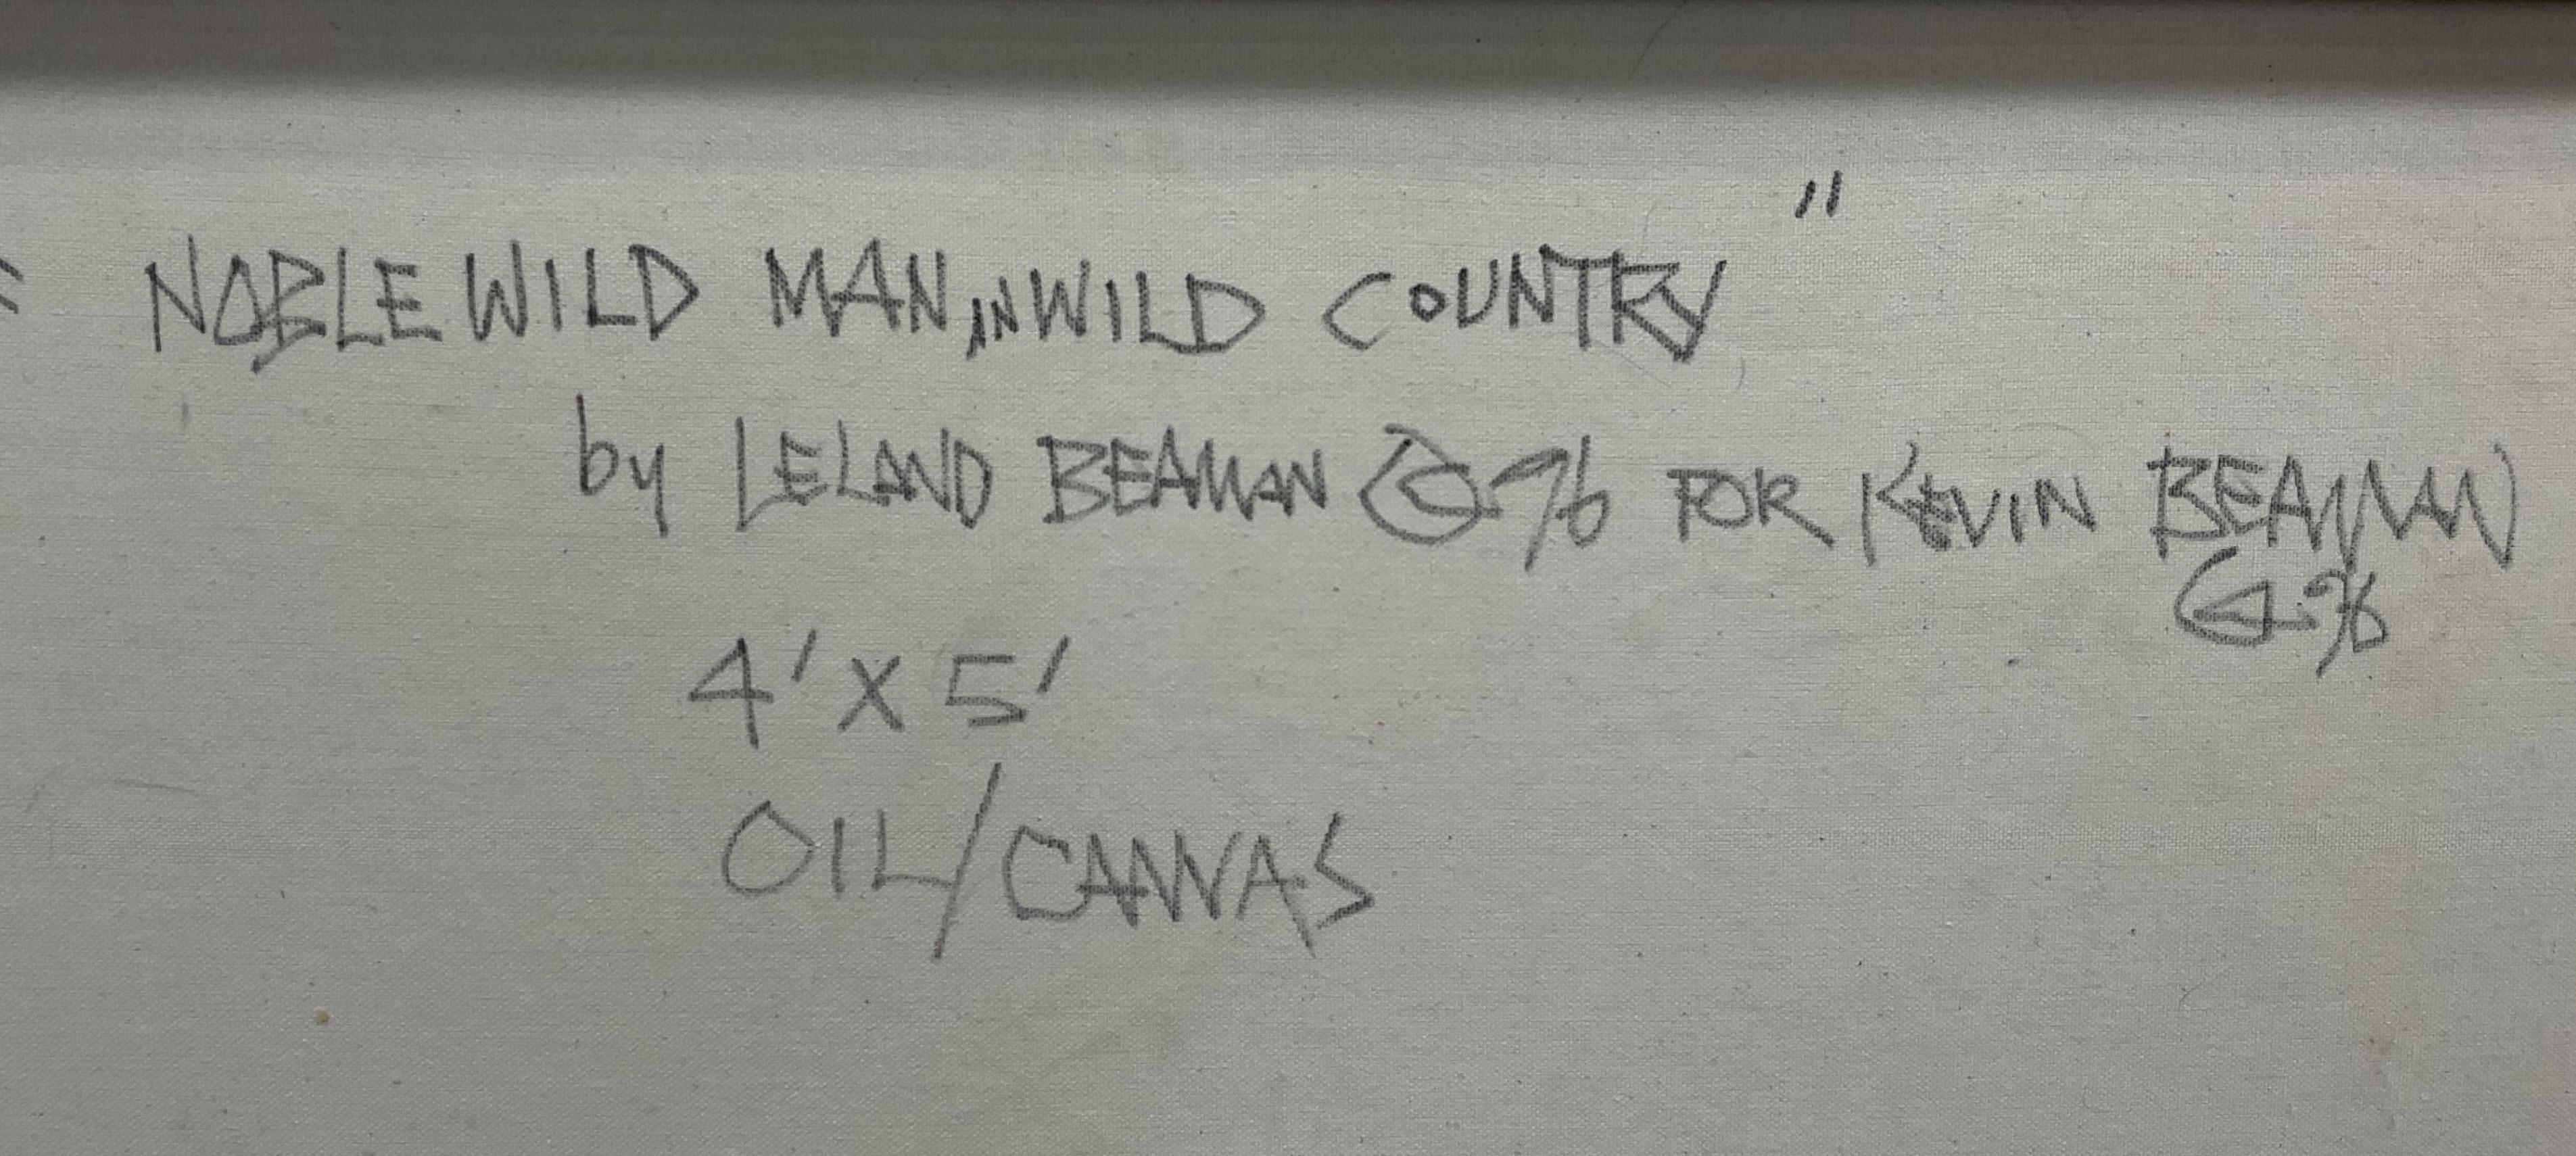 NOBLE WILD MAN IN WILD COUNTRY"
by LELAND BEAMAN © 96 FOR KEVIN BEAMAN
4' X 5'
OIL/CANVAS